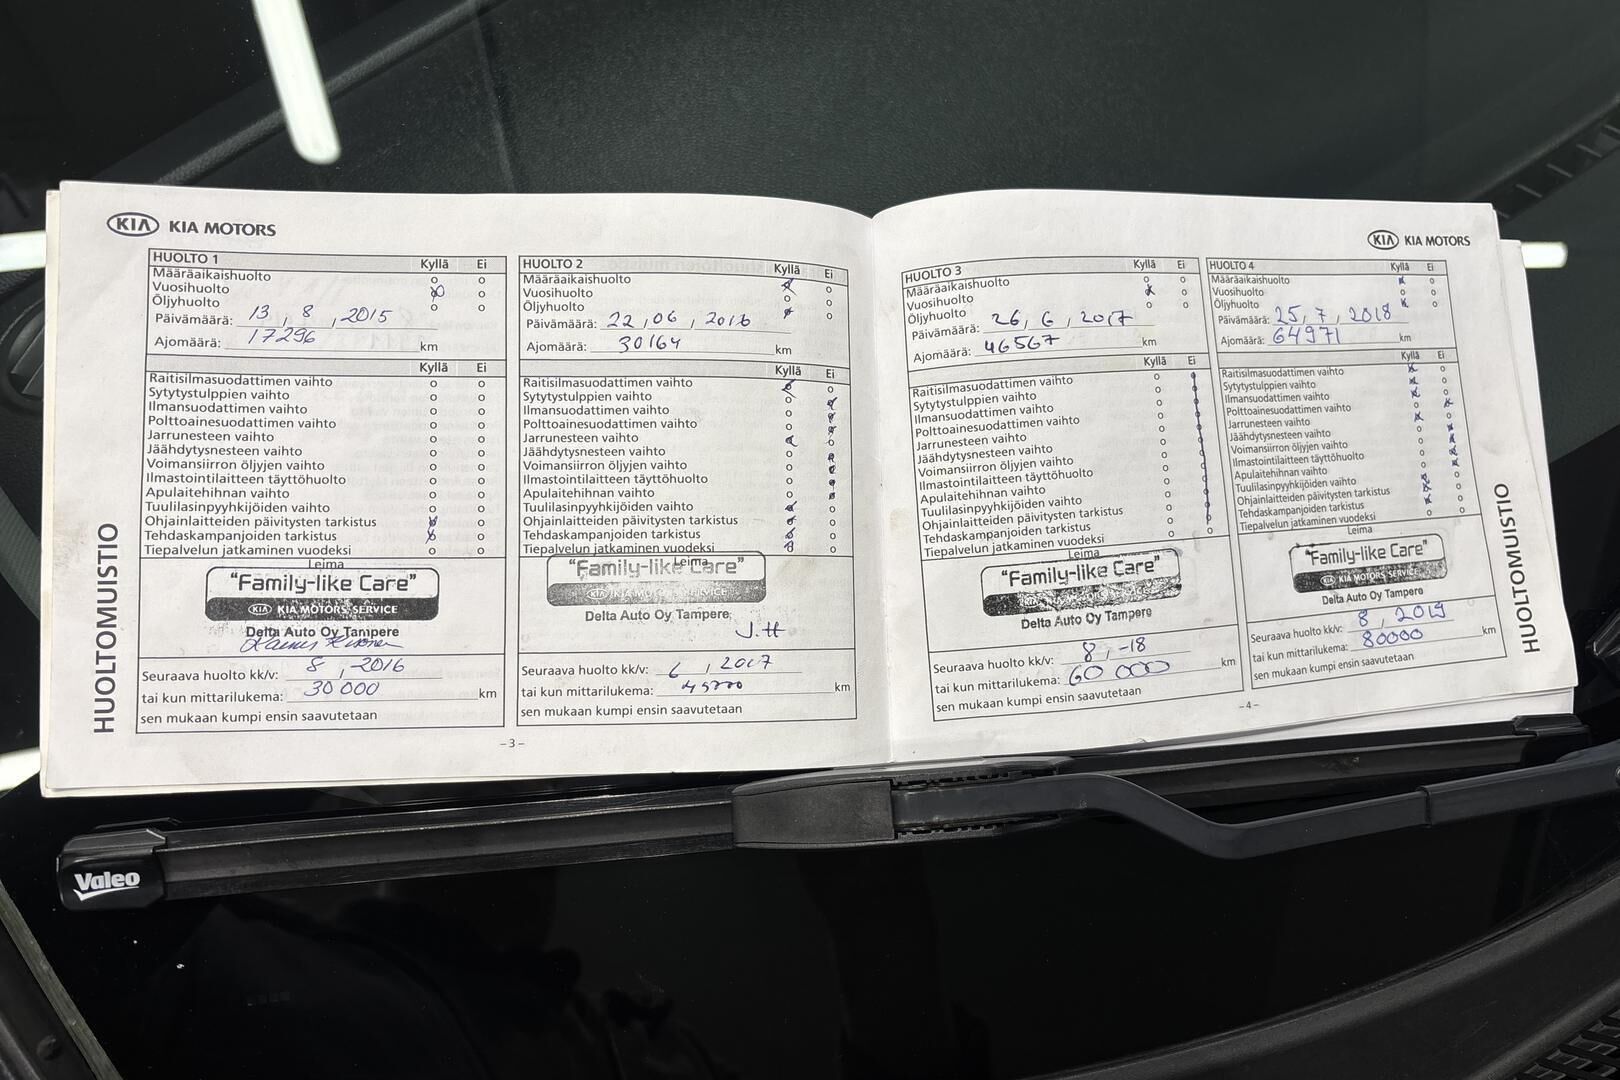 KIA KIA MOTORS
HUOLTOMUISTIO
HUOLTO 1
Kyllä Ei
Määräaikaishuolto
Vuosihuolto
Öljyhuolto
Päivämäärä: 13 , 8 , 2015
Ajomäärä: 17296 km
Kyllä Ei
Raitisilmasuodattimen vaihto
Sytytystulppien vaihto
Ilmansuodattimen vaihto
Polttoainesuodattimen vaihto
Jarrunesteen vaihto
Jäähdytysnesteen vaihto
Voimansiirron öljyjen vaihto
Ilmastointilaitteen täyttöhuolto
Apulaitehihnan vaihto
Tuulilasinpyyhkijöiden vaihto
Ohjainlaitteiden päivitysten tarkistus
Tehdaskampanjoiden tarkistus
Tiepalvelun jatkaminen vuodeksi
Leima
"Family-like Care"
KIA KIA MOTORS SERVICE
Delta Auto Oy Tampere
Seuraava huolto kk/v: 8 , -2016
tai kun mittarilukema: 30 000 km
sen mukaan kumpi ensin saavutetaan
HUOLTO 2
Kyllä Ei
Määräaikaishuolto
Vuosihuolto
Öljyhuolto
Päivämäärä: 22 , 06 , 2016
Ajomäärä: 30164 km
Kyllä Ei
Raitisilmasuodattimen vaihto
Sytytystulppien vaihto
Ilmansuodattimen vaihto
Polttoainesuodattimen vaihto
Jarrunesteen vaihto
Jäähdytysnesteen vaihto
Voimansiirron öljyjen vaihto
Ilmastointilaitteen täyttöhuolto
Apulaitehihnan vaihto
Tuulilasinpyyhkijöiden vaihto
Ohjainlaitteiden päivitysten tarkistus
Tehdaskampanjoiden tarkistus
Tiepalvelun jatkaminen vuodeksi
Leima
"Family-like Care"
KIA KIA MOTORS SERVICE
Delta Auto Oy Tampere
J.H
Seuraava huolto kk/v: 6 , 2017
tai kun mittarilukema: 45000 km
sen mukaan kumpi ensin saavutetaan
- 3 -
KIA KIA MOTORS
HUOLTO 3
Kyllä Ei
Määräaikaishuolto
Vuosihuolto
Öljyhuolto
Päivämäärä: 26 , 6 , 2017
Ajomäärä: 46567 km
Kyllä Ei
Raitisilmasuodattimen vaihto
Sytytystulppien vaihto
Ilmansuodattimen vaihto
Polttoainesuodattimen vaihto
Jarrunesteen vaihto
Jäähdytysnesteen vaihto
Voimansiirron öljyjen vaihto
Ilmastointilaitteen täyttöhuolto
Apulaitehihnan vaihto
Tuulilasinpyyhkijöiden vaihto
Ohjainlaitteiden päivitysten tarkistus
Tehdaskampanjoiden tarkistus
Tiepalvelun jatkaminen vuodeksi
Leima
"Family-like Care"
KIA KIA MOTORS SERVICE
Delta Auto Oy Tampere
Seuraava huolto kk/v: 8 , -18
tai kun mittarilukema: 60 000 km
sen mukaan kumpi ensin saavutetaan
HUOLTO 4
Kyllä Ei
Määräaikaishuolto
Vuosihuolto
Öljyhuolto
Päivämäärä: 25 , 7 , 2018
Ajomäärä: 64971 km
Kyllä Ei
Raitisilmasuodattimen vaihto
Sytytystulppien vaihto
Ilmansuodattimen vaihto
Polttoainesuodattimen vaihto
Jarrunesteen vaihto
Jäähdytysnesteen vaihto
Voimansiirron öljyjen vaihto
Ilmastointilaitteen täyttöhuolto
Apulaitehihnan vaihto
Tuulilasinpyyhkijöiden vaihto
Ohjainlaitteiden päivitysten tarkistus
Tehdaskampanjoiden tarkistus
Tiepalvelun jatkaminen vuodeksi
Leima
"Family-like Care"
KIA KIA MOTORS SERVICE
Delta Auto Oy Tampere
Seuraava huolto kk/v: 8 , 2019
tai kun mittarilukema: 80000 km
sen mukaan kumpi ensin saavutetaan
- 4 -
HUOLTOMUISTIO
Valeo